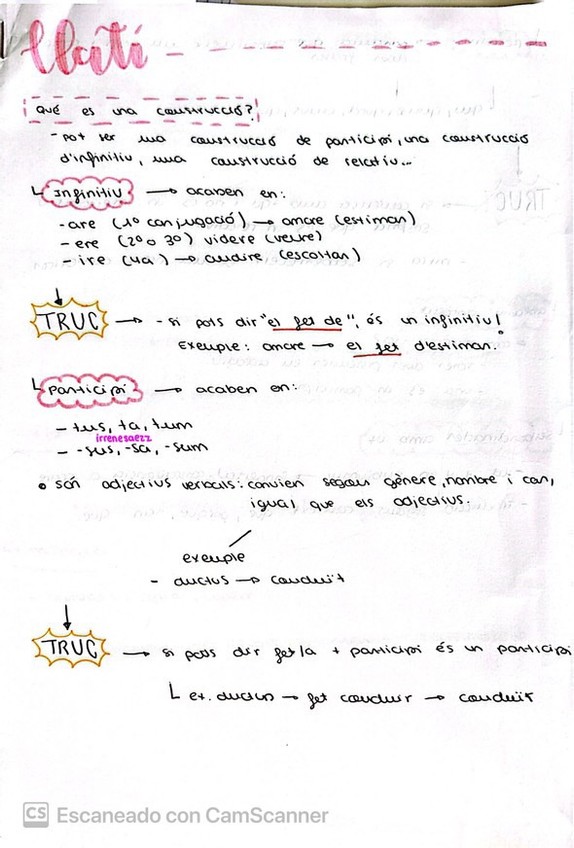 llatí
Qué és una construcció?
- pot ser una construcció de participi, una construcció
d'infinitiu, una construcció de relatiu...
Infinitiu → acaben en:
- are (1º conjugació) → amare (estimar)
- ere (2º o 3º) videre (veure)
- ire (4a) → audire (escoltar)
TRUC → - si pots dir "el fet de", és un infinitiu!
Exemple: amare → el fet d'estimar.
Participi → acaben en:
- tus, ta, tum
irrenesaezz
- -sus, -sa, -sum
• són adjectius verbals: canvien segons gènere, nombre i cas,
igual que els adjectius.
exemple
- ductus → conduït
TRUC → si pots dir fet/a + participi és un participi
ex. ductus → fet conduir → conduït
CS Escaneado con CamScanner